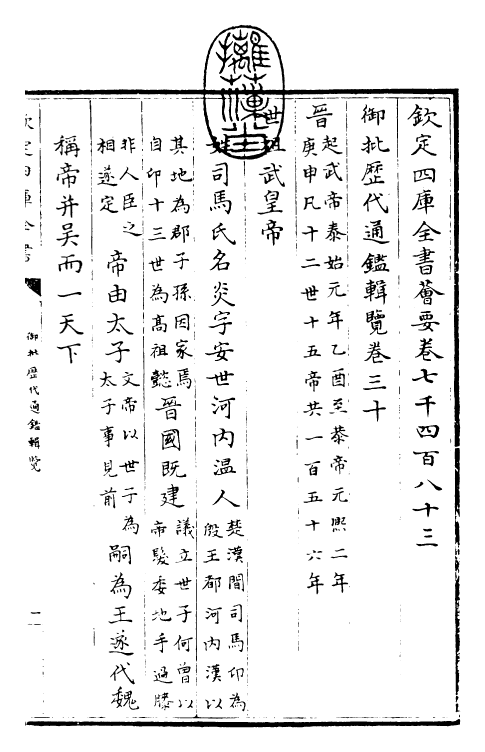 摛藻堂
欽定四庫全書薈要卷七千四百八十三
御批歷代通鑑輯覽卷三十
晉
起武帝泰始元年乙酉至恭帝元熙二年
庚申凡十二世十五帝共一百五十六年
世祖武皇帝
姓司馬氏名炎字安世河内温人
楚漢間司馬卬為
殷王都河内漢以
其地為郡子孫因家焉
自卬十三世為髙祖懿
晉國既建
議立世子何曾以
帝髮委地手過膝
非人臣之
相遂定
帝由太子
文帝以世子為
太子事見前
嗣為王遂代魏
稱帝并吳而一天下
欽定四庫全書
御批歷代通鑑輯覽
一